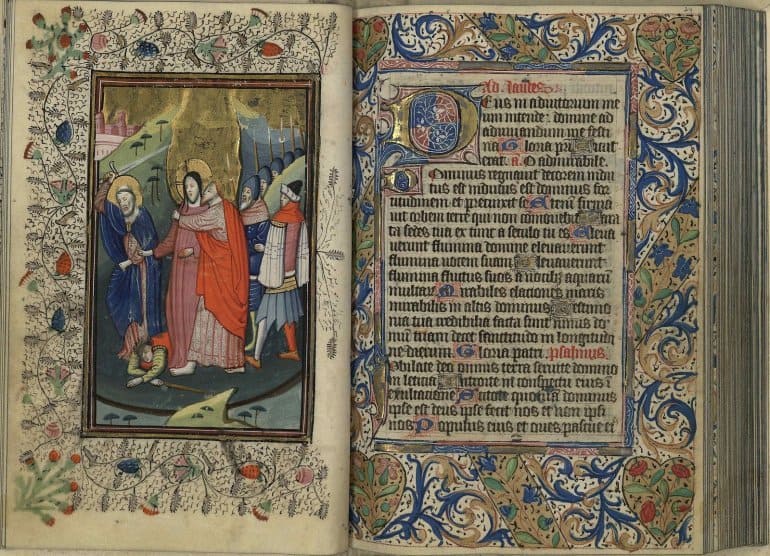 Ad laudes
Deus in adiutorium me
um intende: domine ad
adiuuandum me festi
na Gloria pri Sicut
erat. a. O admirabile.
Dominus regnauit decorem indu
tus est indutus est dominus for
titudinem et precinxit se Etenim firma
uit orbem terre qui non commouebit Para
ta sedes tua ex tunc a seculo tu es Ele
uerunt flumina domine eleuauerunt
flumina uocem suam Eleuauerunt
flumina fluctus suos a uocibz aquarum
multarum Mirabiles elaciones maris
mirabilis in altis dominus Testimo
nia tua credibilia facta sunt nimis do
mum tuam decet sanctitudo in longitudi
ne dierum Gloria patri. psalmus.
Iubilate deo omnis terra seruite domino
in leticia Introite in conspectu eius i
exultacione Scitote quoniam dominus
ipse est deus ipse fecit nos et non ipsi
nos Populus eius et oues pascue ei